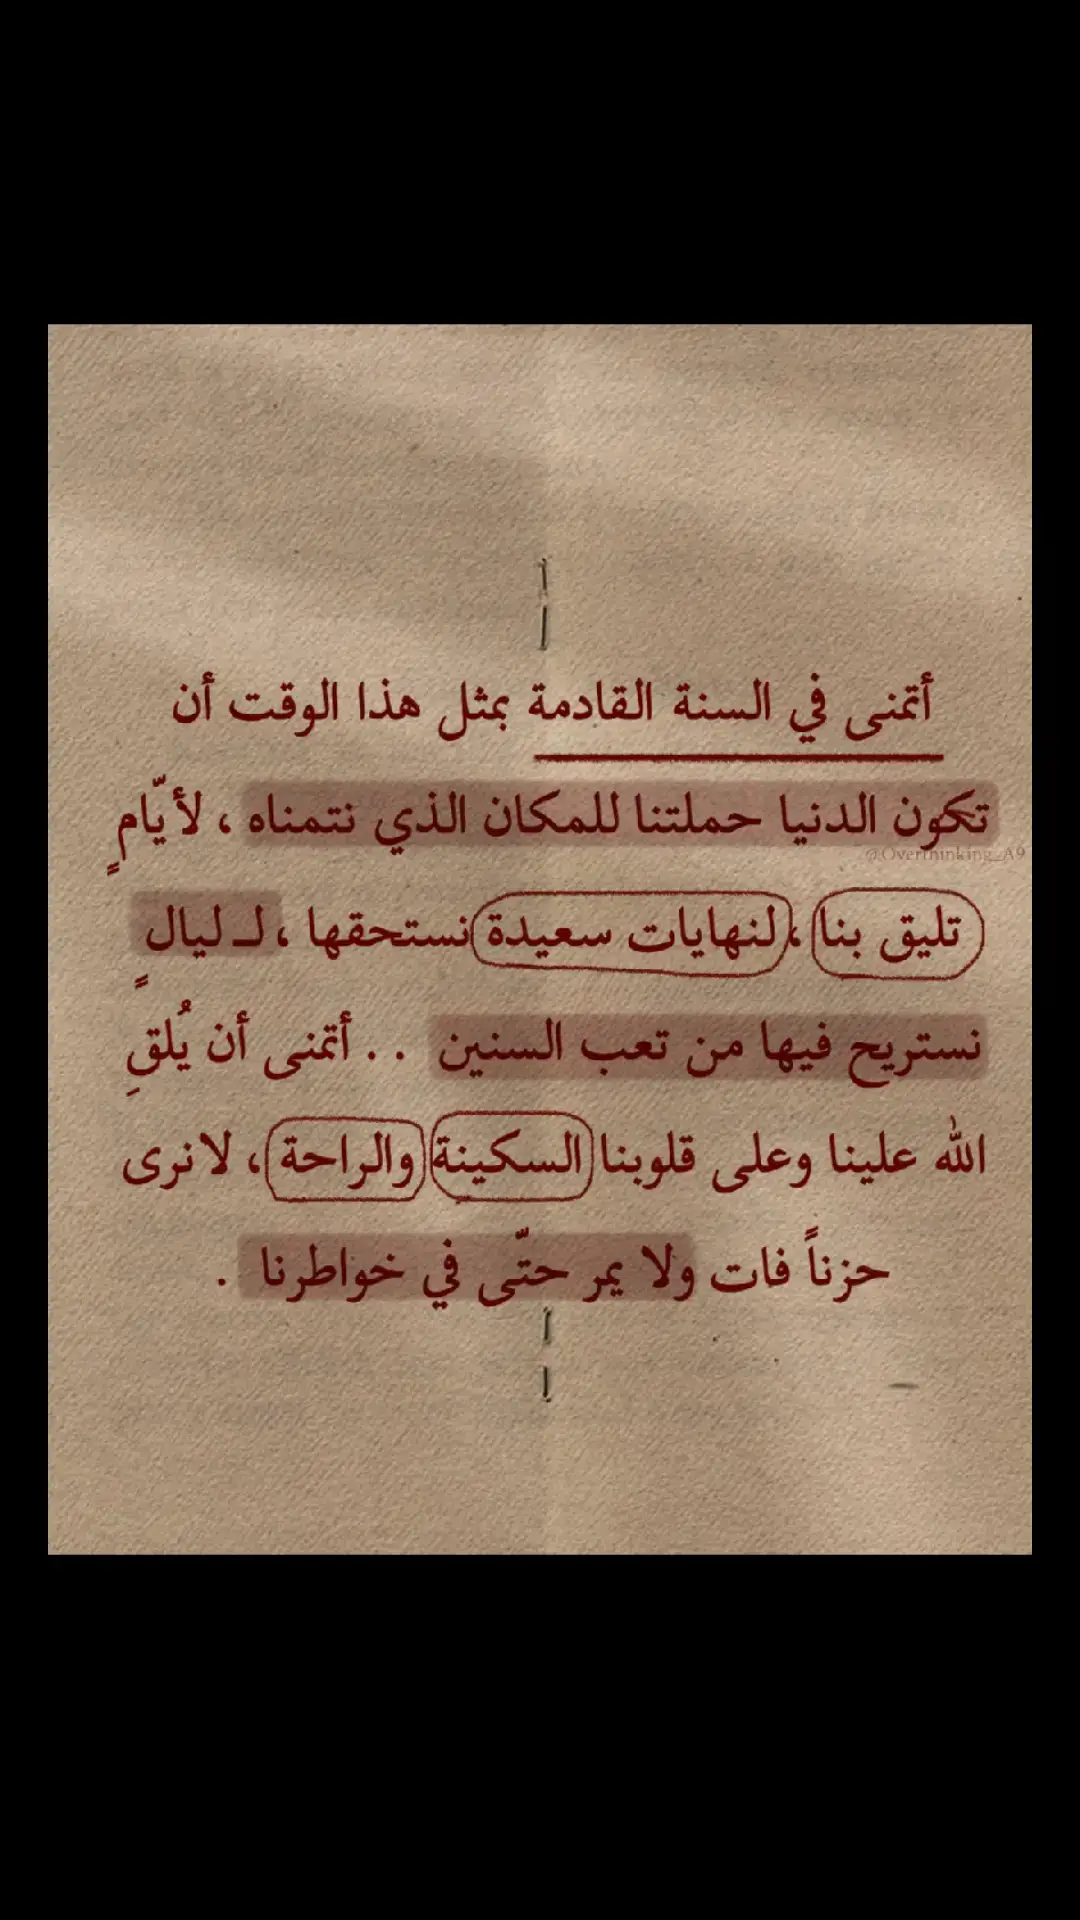 أتمنى في السنة القادمة بمثل هذا الوقت أن
تكون الدنيا حملتنا للمكان الذي نتمناه ، لأيّامٍ
@Overthinking_A9
تليق بنا ، لنهايات سعيدة نستحقها ، لـ ليالٍ
نستريح فيها من تعب السنين . . أتمنى أن يُلقِ
الله علينا وعلى قلوبنا السكينة والراحة ، لا نرى
حزناً فات ولا يمر حتّى في خواطرنا .